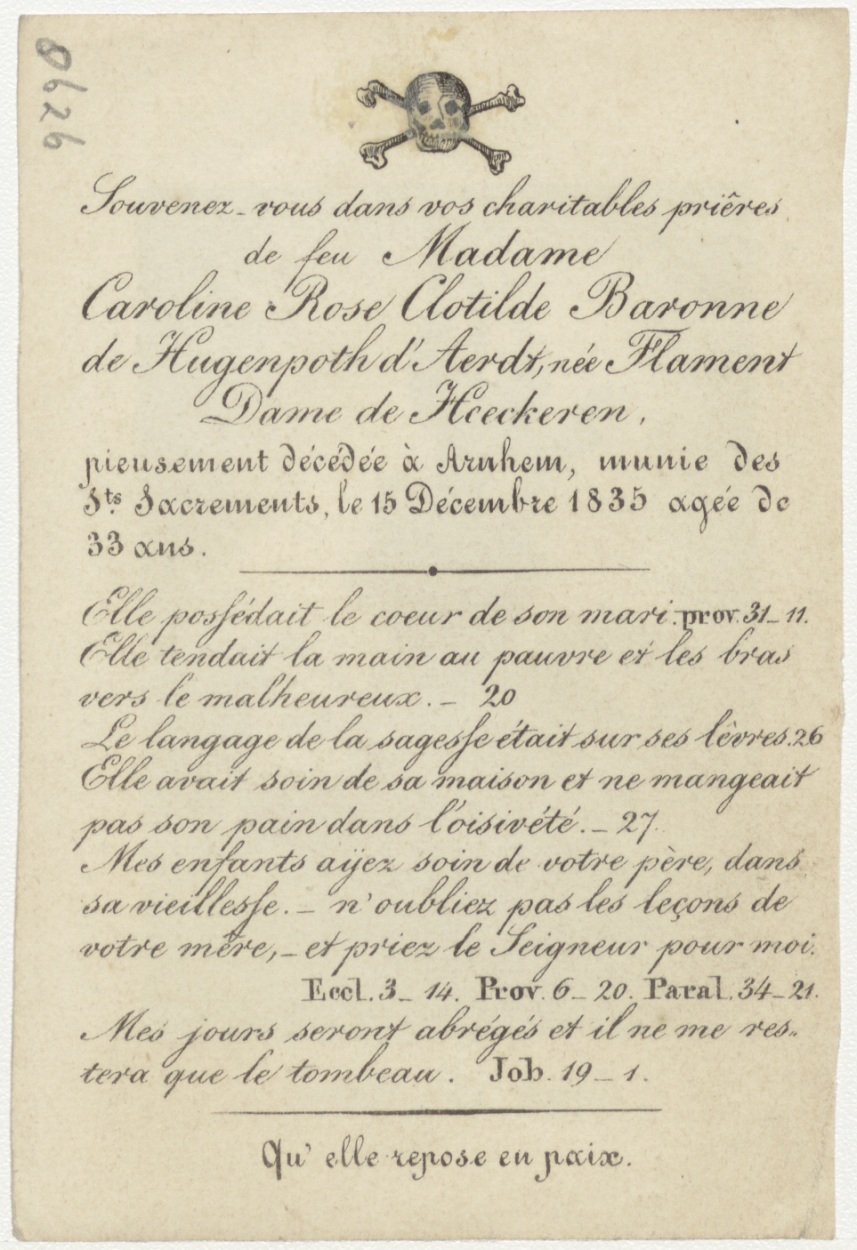 8626
Souvenez-vous dans vos charitables prières
de feu Madame
Caroline Rose Clotilde Baronne
de Hugenpoth d'Aerdt, née Flament
Dame de Hœckeren,
pieusement décédée à Arnhem, munie des
Sts. Sacrements, le 15 Décembre 1835 agée de
33 ans.
Elle possédait le coeur de son mari. prov. 31-11.
Elle tendait la main au pauvre et les bras
vers le malheureux. - 20
Le langage de la sagesse était sur ses lèvres. 26
Elle avait soin de sa maison et ne mangeait
pas son pain dans l'oisivété. - 27.
Mes enfants aÿez soin de votre père, dans
sa vieillesse. - n'oubliez pas les leçons de
votre mêre, - et priez le Seigneur pour moi.
Eccl. 3-14. Prov. 6-20. Paral. 34-21.
Mes jours seront abrégés et il ne me res-
tera que le tombeau. Job. 19-1.
Qu'elle repose en paix.